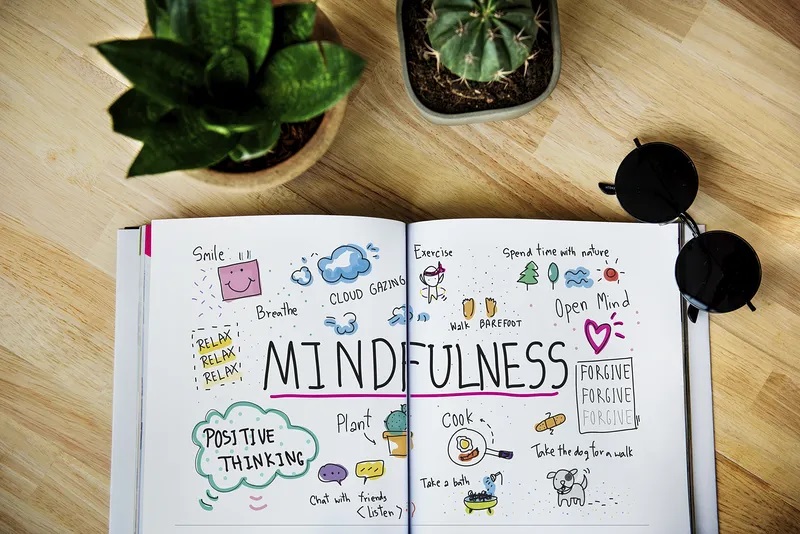 Smile
Breathe
CLOUD GAZING
RELAX
RELAX
RELAX
Exercise
Spend time with nature
Walk BAREFOOT
Open Mind
MINDFULNESS
FORGIVE
FORGIVE
FORGIVE
POSITIVE
THINKING
Plant
Chat with friends
<Listen>
Cook
Take a bath
Take the dog for a walk